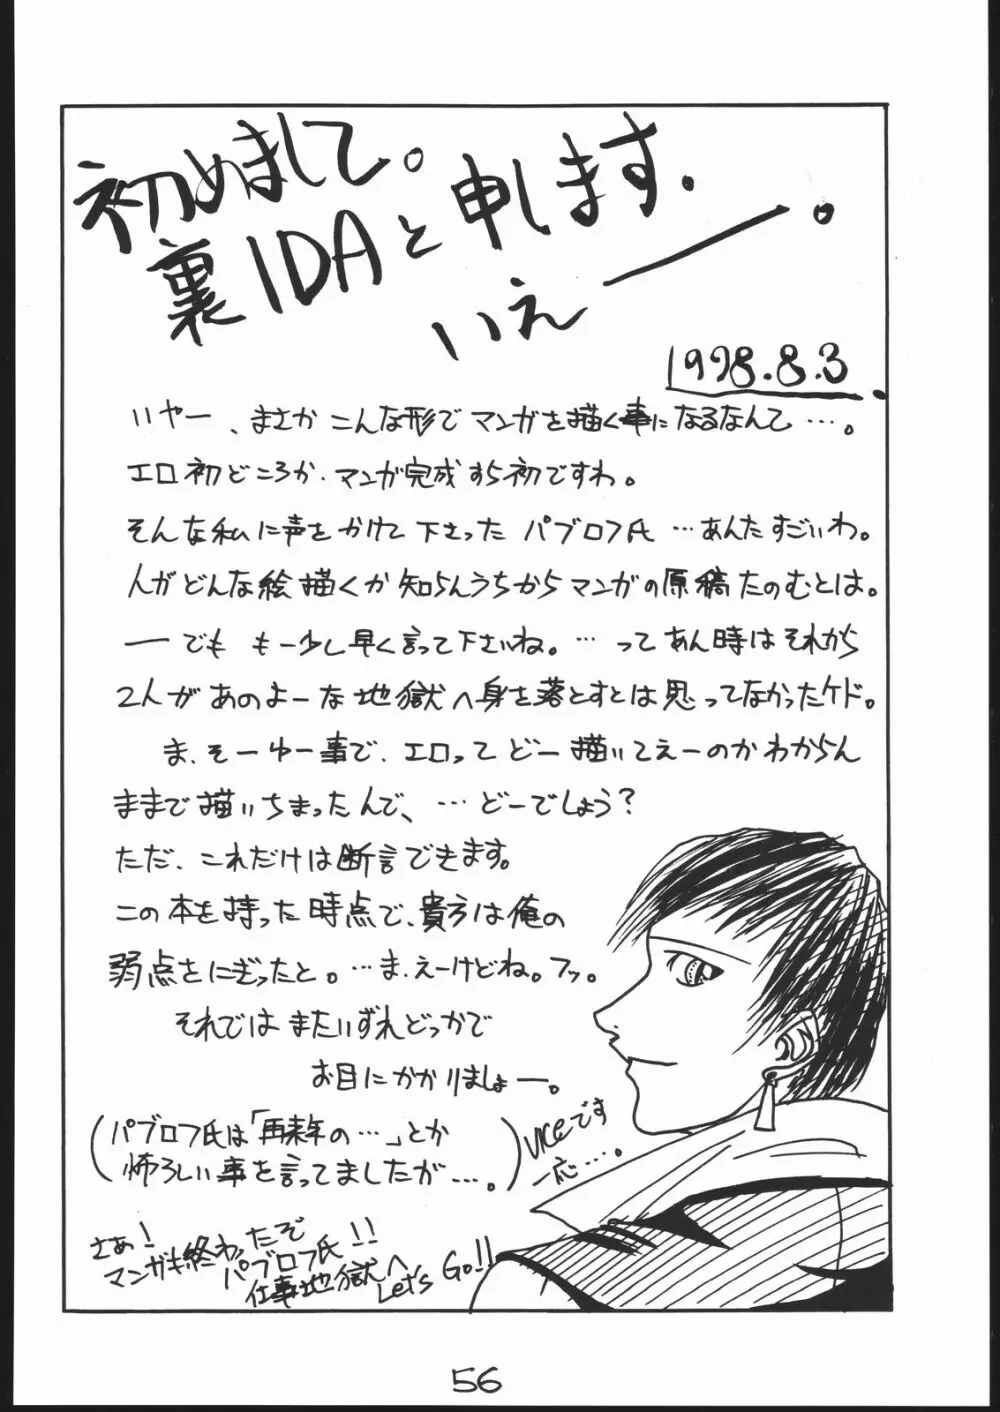 初めまして。
裏IDAと申します.
いえー。
1998.8.3.
いやー、まさかこんな形でマンガを描く事になるなんて…。
エロ初どころか、マンガ完成すら初ですわ。
そんな私に声をかけて下さったパブロフ氏…あんたすごいわ。
人がどんな絵描くか知らんうちからマンガの原稿たのむとは。
―でも もー少し早く言って下さいね。…ってあん時はそれから
2人があのよーな地獄へ身を落とすとは思ってなかったケド。
ま、そーゆー事で、エロってどー描いてえーのかわからん
ままで描いちまったんで、…どーでしょう？
ただ、これだけは断言できます。
この本を持った時点で、貴方は俺の
弱点をにぎったと。…ま、えーけどね。フッ。
それではまたいずれどっかで
お目にかかりましょー。
(パブロフ氏は「再来年の…」とか
怖ろしい事を言ってましたが…。)
VICEです
一応…。
さぁ！
マンガも終わったぞ
パブロフ氏！！
仕事地獄へ
Let's Go!!
56